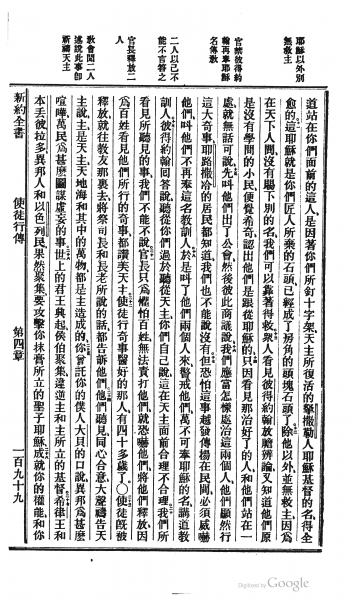 耶穌以外別
無救主
官禁彼得約
翰再奉耶穌
名傳教
二人以己不
能不言答之
官長釋放二
人
教會聞二人
述說此事卽
祈禱天主
道站在你們面前的這人是因著你們所釘十字架天主所復活的拿撒勒人耶穌基督的名得全
愈的這耶穌就是你們匠人所棄的石頭已經成了房角的頭塊石頭了除他以外並無救主因爲
在天下人間沒有賜下別的名我們可以靠著得救衆人看見彼得約翰放膽辨論又知道他們原
是沒有學問的小民便覺希奇認出他們是跟從耶穌的只因看見那治好了的人和他們站在一
處就無話可說先叫他們出了公會然後彼此商議說我們應當怎樣處治這兩個人他們顯然行
這大奇事耶路撒冷的居民都知道我們也不能說沒有但恐怕這事越發傳揚在民間必須威嚇
他們叫他們不再奉這名教訓人於是叫了他們兩個人來警戒他們萬不可奉耶穌的名講道教
訓人彼得約翰回答說聽從你們過於聽從天主你們自己說這在天主面前合理不合理我們所
看見所聽見的事我們不能不說官長只爲懼怕百姓無法責打他們就恐嚇他們將他們釋放因
爲百姓看見他們所行的奇事都讚美天主使徒行奇事醫好的那人有四十多歲了○使徒旣被
釋放就往教友那裏去將祭司長和長老所說的話都告訴他們他們聽見同心合意大聲禱告天
主說主是天主天地海和其中的萬物都是主造成的你曾託你的僕人大衛的口說異邦爲甚麼
喧嘩萬民爲甚麼圖謀虛妄的事世上的君王興起侯伯聚集違逆主和主所立的基督希律王和
本丟彼拉多異邦人和以色列民果然聚集要攻擊你抹膏所立的聖子耶穌成就你的權能和你
新約全書 使徒行傳 第四章 一百九十九
Digitized by Google